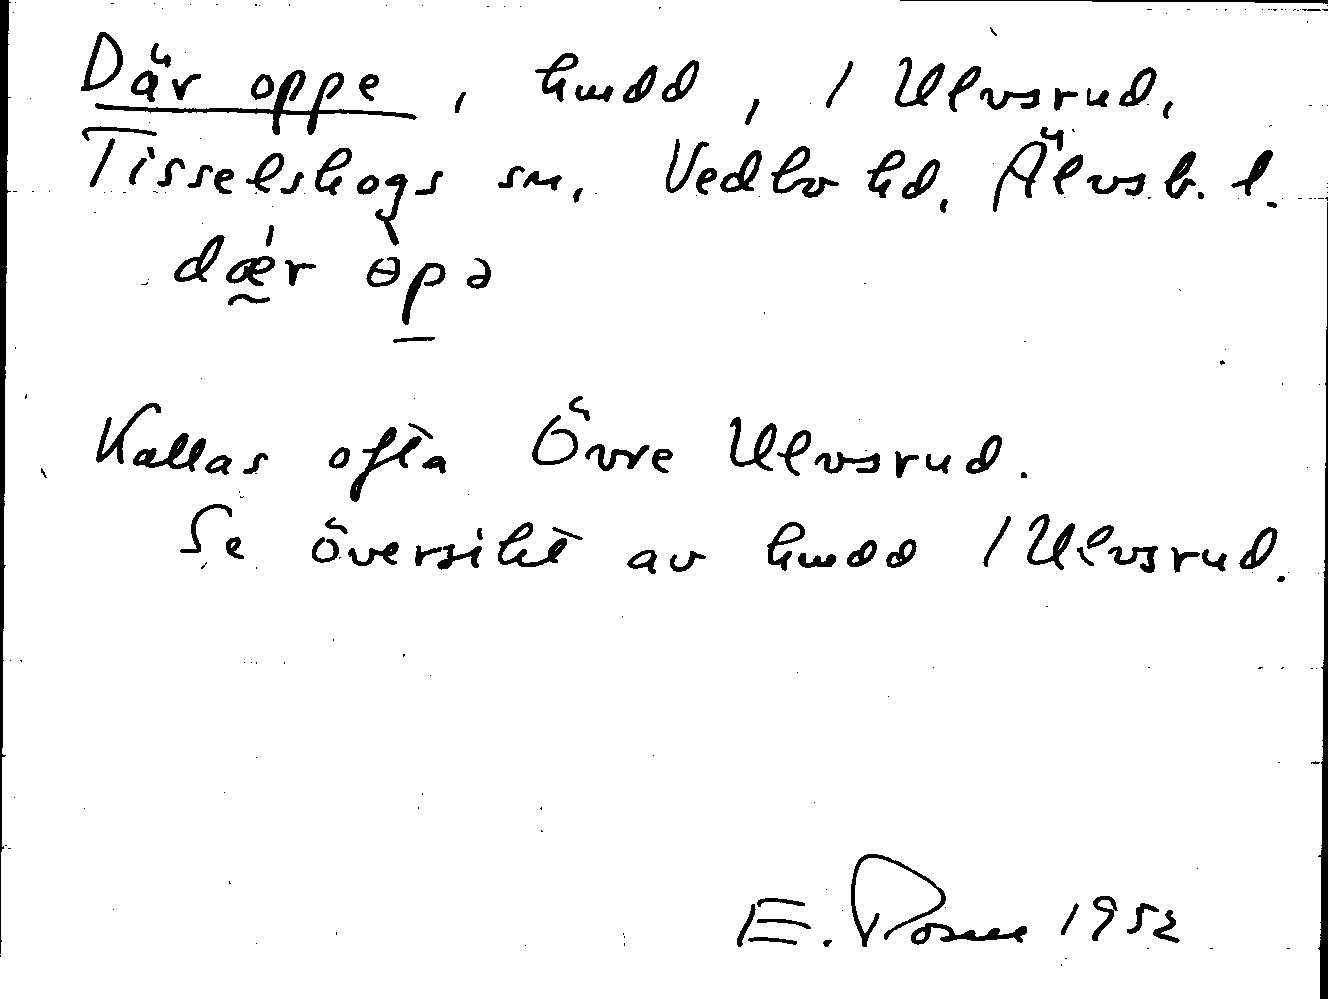 Där oppe, hmdd, / Ulvsrud,
Tisselskogs sn, Vedbo hd, Älvsb. l.
dǽr òpə
Kallas ofta Övre Ulvsrud.
Se översikt av hmdd / Ulvsrud.
E. 1952